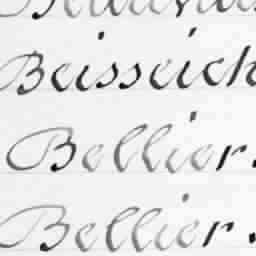 Beisseich
Bellier.
Bellier.